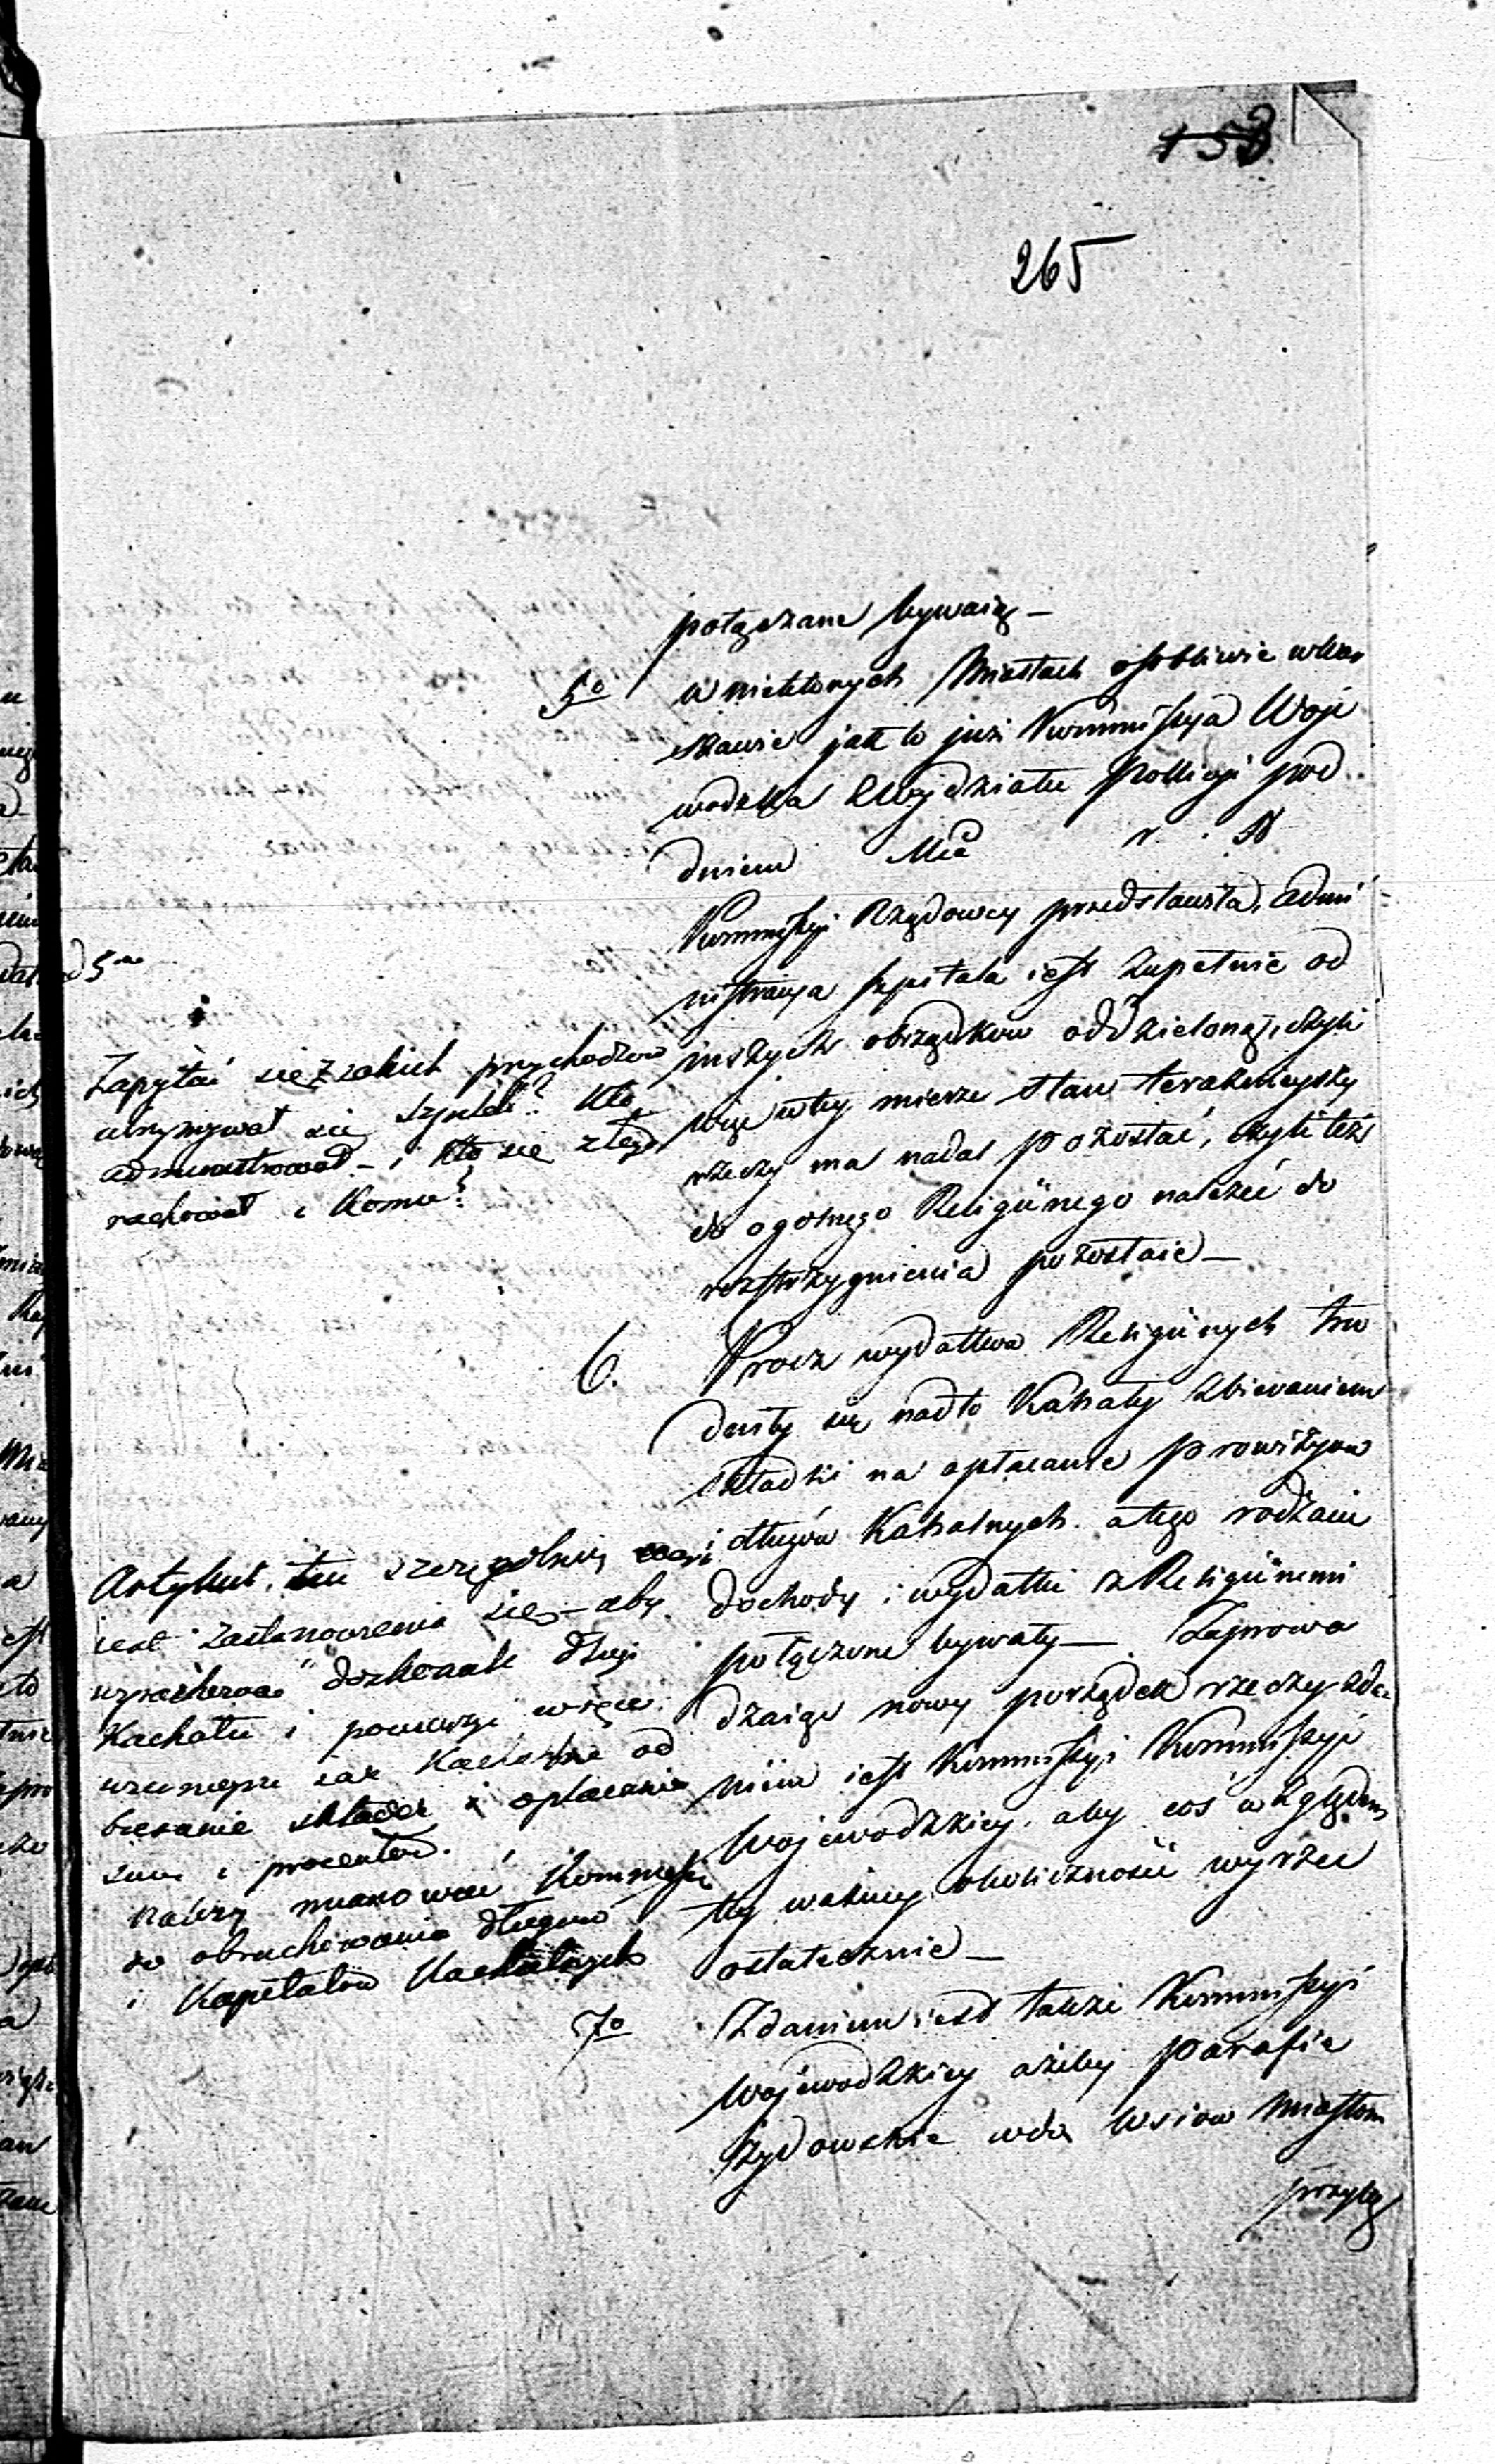 153.
265
połączane bywaią —
5o w niektorych Miastach osobliwie w War
szawie jak to już Kommissya Woje
wodzka Wydziału Pollicyi pod
dniem Mca r. b
Kommissyi Rządowey przedstawiła, Admi
nistracya szpitala iest zupełnie od
innych obrządkow oddzieloną, czyli
więc w tey mierze stan teraźnieyszy
rzeczy ma nadal pozostać, czyli też
do ogolnego Religiinego należeć do
rozstrzygnienia pozostaie —
ad 5m
Zapytać się z jakich przychodzow
utrzymywał się szpital? Kto
administrował — i Kto się z tego
rachował i Komu?
6. Procz wydatkow Religiinych tru
dniły się nadto Kahały zbieraniem
składki na opłacanie prowizyow
i długów Kahalnych. a tego rodzaiu
dochody i wydatki z Religiinemi
połączone bywały — Zaprowa
dzaiąc nowy porządek rzeczy zda
niem iest Kommissyi Kommissyi
Wojewodzkiey, aby coś względem
tey ważney okoliczności wyrzec
ostatecznie —
Artykuł ten szczególniey wart
iest zastanowienia się — aby
doskonale długi
Kachału i
od
bieranie składek i opłacanie
sum i procentów.
Należy mianować Kommissyę
do obrachowania długów
i Kapitałów Kachalnych
7o Zdaniem iest także Kommissyi
Wojewodzkiey ażeby Parafie
Żydowskie wdł Wsiow Miastom
przyleg